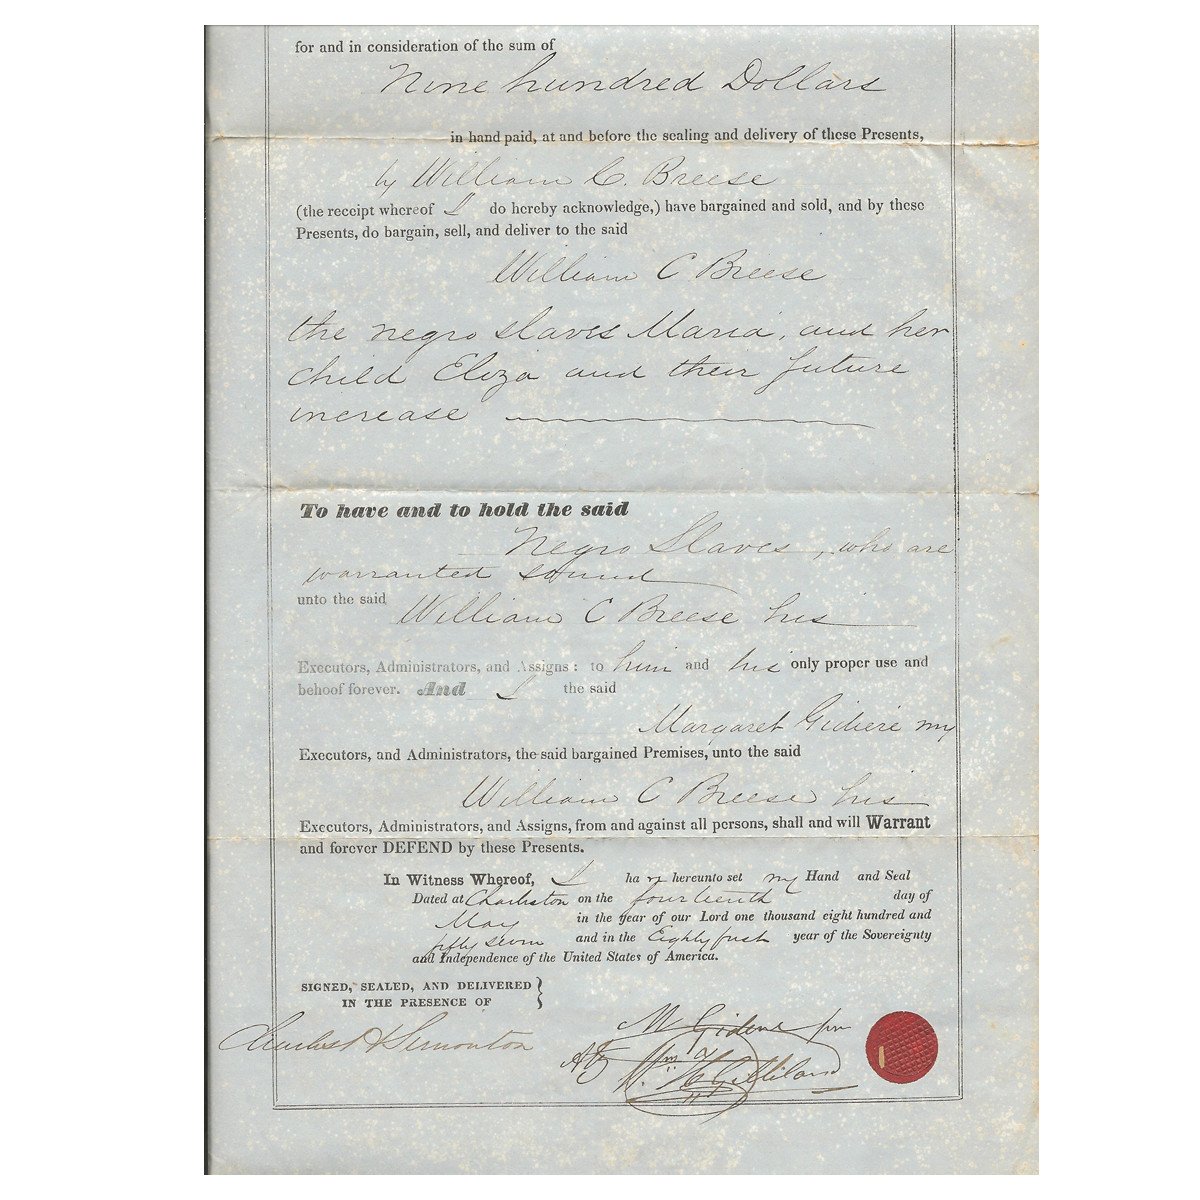 for and in consideration of the sum of
Nine hundred Dollars
in hand paid, at and before the sealing and delivery of these Presents,
by William C. Breese
(the receipt whereof I do hereby acknowledge,) have bargained and sold, and by these
Presents, do bargain, sell, and deliver to the said
William C Breese
the negro slaves Maria, and her
child Eliza and their future
increase
To have and to hold the said
Negro Slaves, who are
warranted sound
unto the said
William C Breese his
Executors, Administrators, and Assigns: to him and his only proper use and
behoof forever. And I the said
Margaret my
Executors, and Administrators, the said bargained Premises, unto the said
William C Breese his
Executors, Administrators, and Assigns, from and against all persons, shall and will Warrant
and forever DEFEND by these Presents.
In Witness Whereof, I ha ve hereunto set my Hand and Seal
Dated at Charleston on the fourteenth day of
May in the year of our Lord one thousand eight hundred and
fifty seven and in the Eighty first year of the Sovereignty
and Independence of the United States of America.
SIGNED, SEALED, AND DELIVERED
IN THE PRESENCE OF
M
Charles H Simonton
Atty Wm H Gilliland